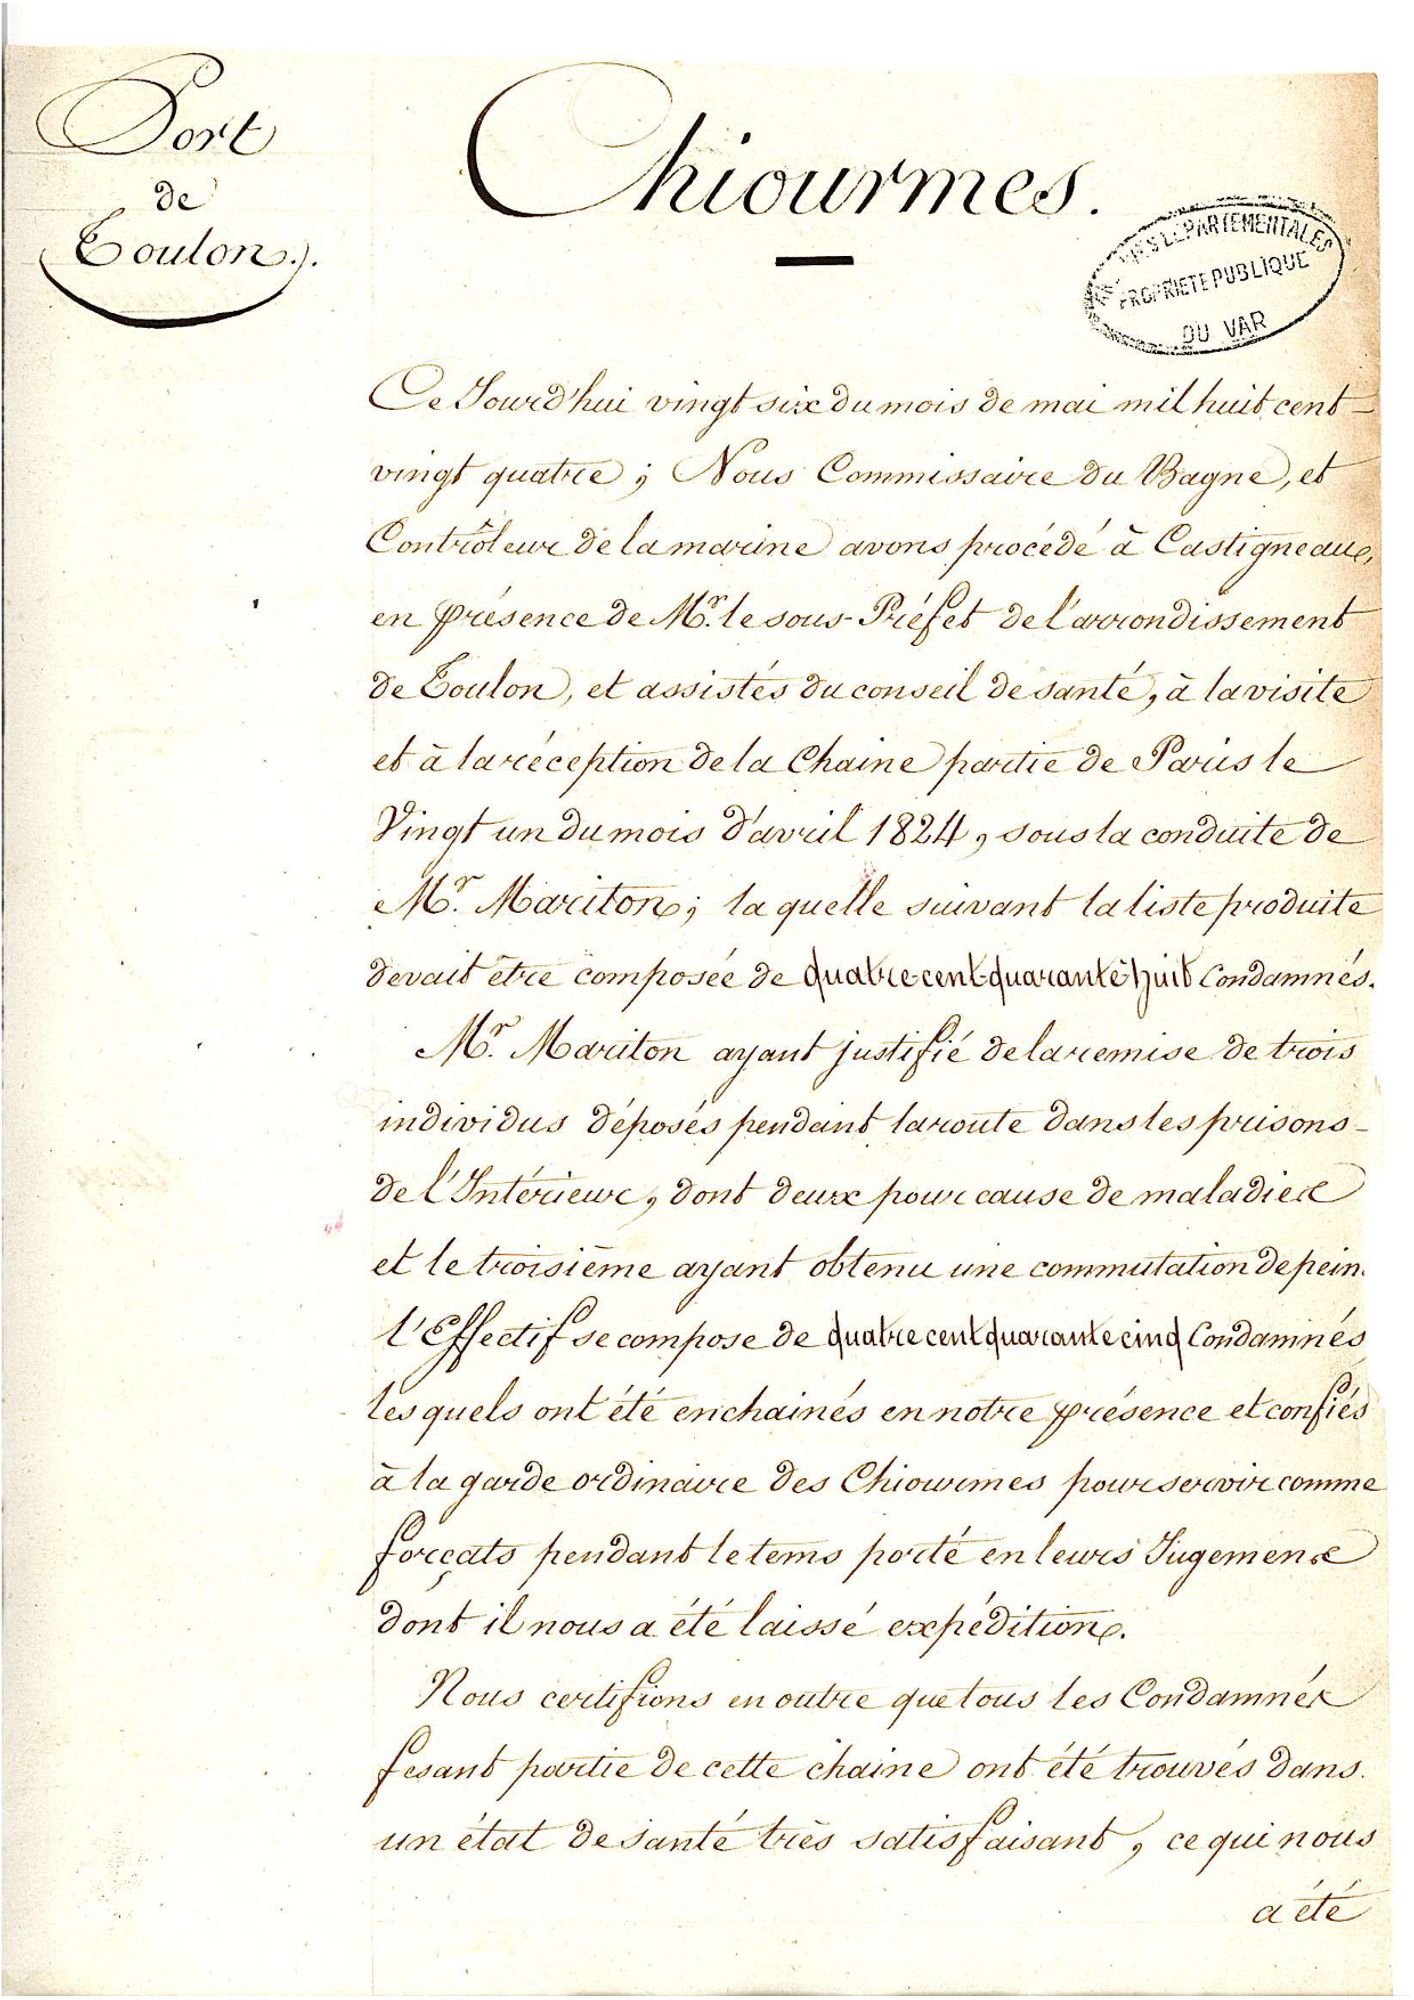 Port
de
Toulon.
Chiourmes.
DEPARTEMENTALES
PROPRIETE PUBLIQUE
DU VAR
Ce Jourd'hui vingt six du mois de mai mil huit cent
vingt quatre ; Nous Commissaire du Bagne, et
Contrôleur de la marine avons procédé à Castigneaux,
en présence de Mr. le sous-Préfet de l'arrondissement
de Toulon, et assistés du conseil de santé, à la visite
et à la réception de la Chaine partie de Paris le
Vingt un du mois d'avril 1824, sous la conduite de
Mr. Mariton; la quelle suivant la liste produite
devait être composée de quatre-cent-quarante-huit Condamnés.
Mr. Mariton ayant justifié de la remise de trois
individus déposés pendant la route dans les prisons
de l'Intérieur, dont deux pour cause de maladie
et le troisième ayant obtenu une commutation de pein
l'Effectif se compose de quatre cent quarante cinq Condamnés
les quels ont été enchainés en notre présence et confiés
à la garde ordinaire des Chiourmes pour servir comme
forçats pendant le tems porté en leurs Jugemens
dont il nous a été laissé expédition.
Nous certifions en outre que tous les Condamnés
fesant partie de cette chaine ont été trouvés dans
un état de santé très satisfaisant, ce qui nous
a été